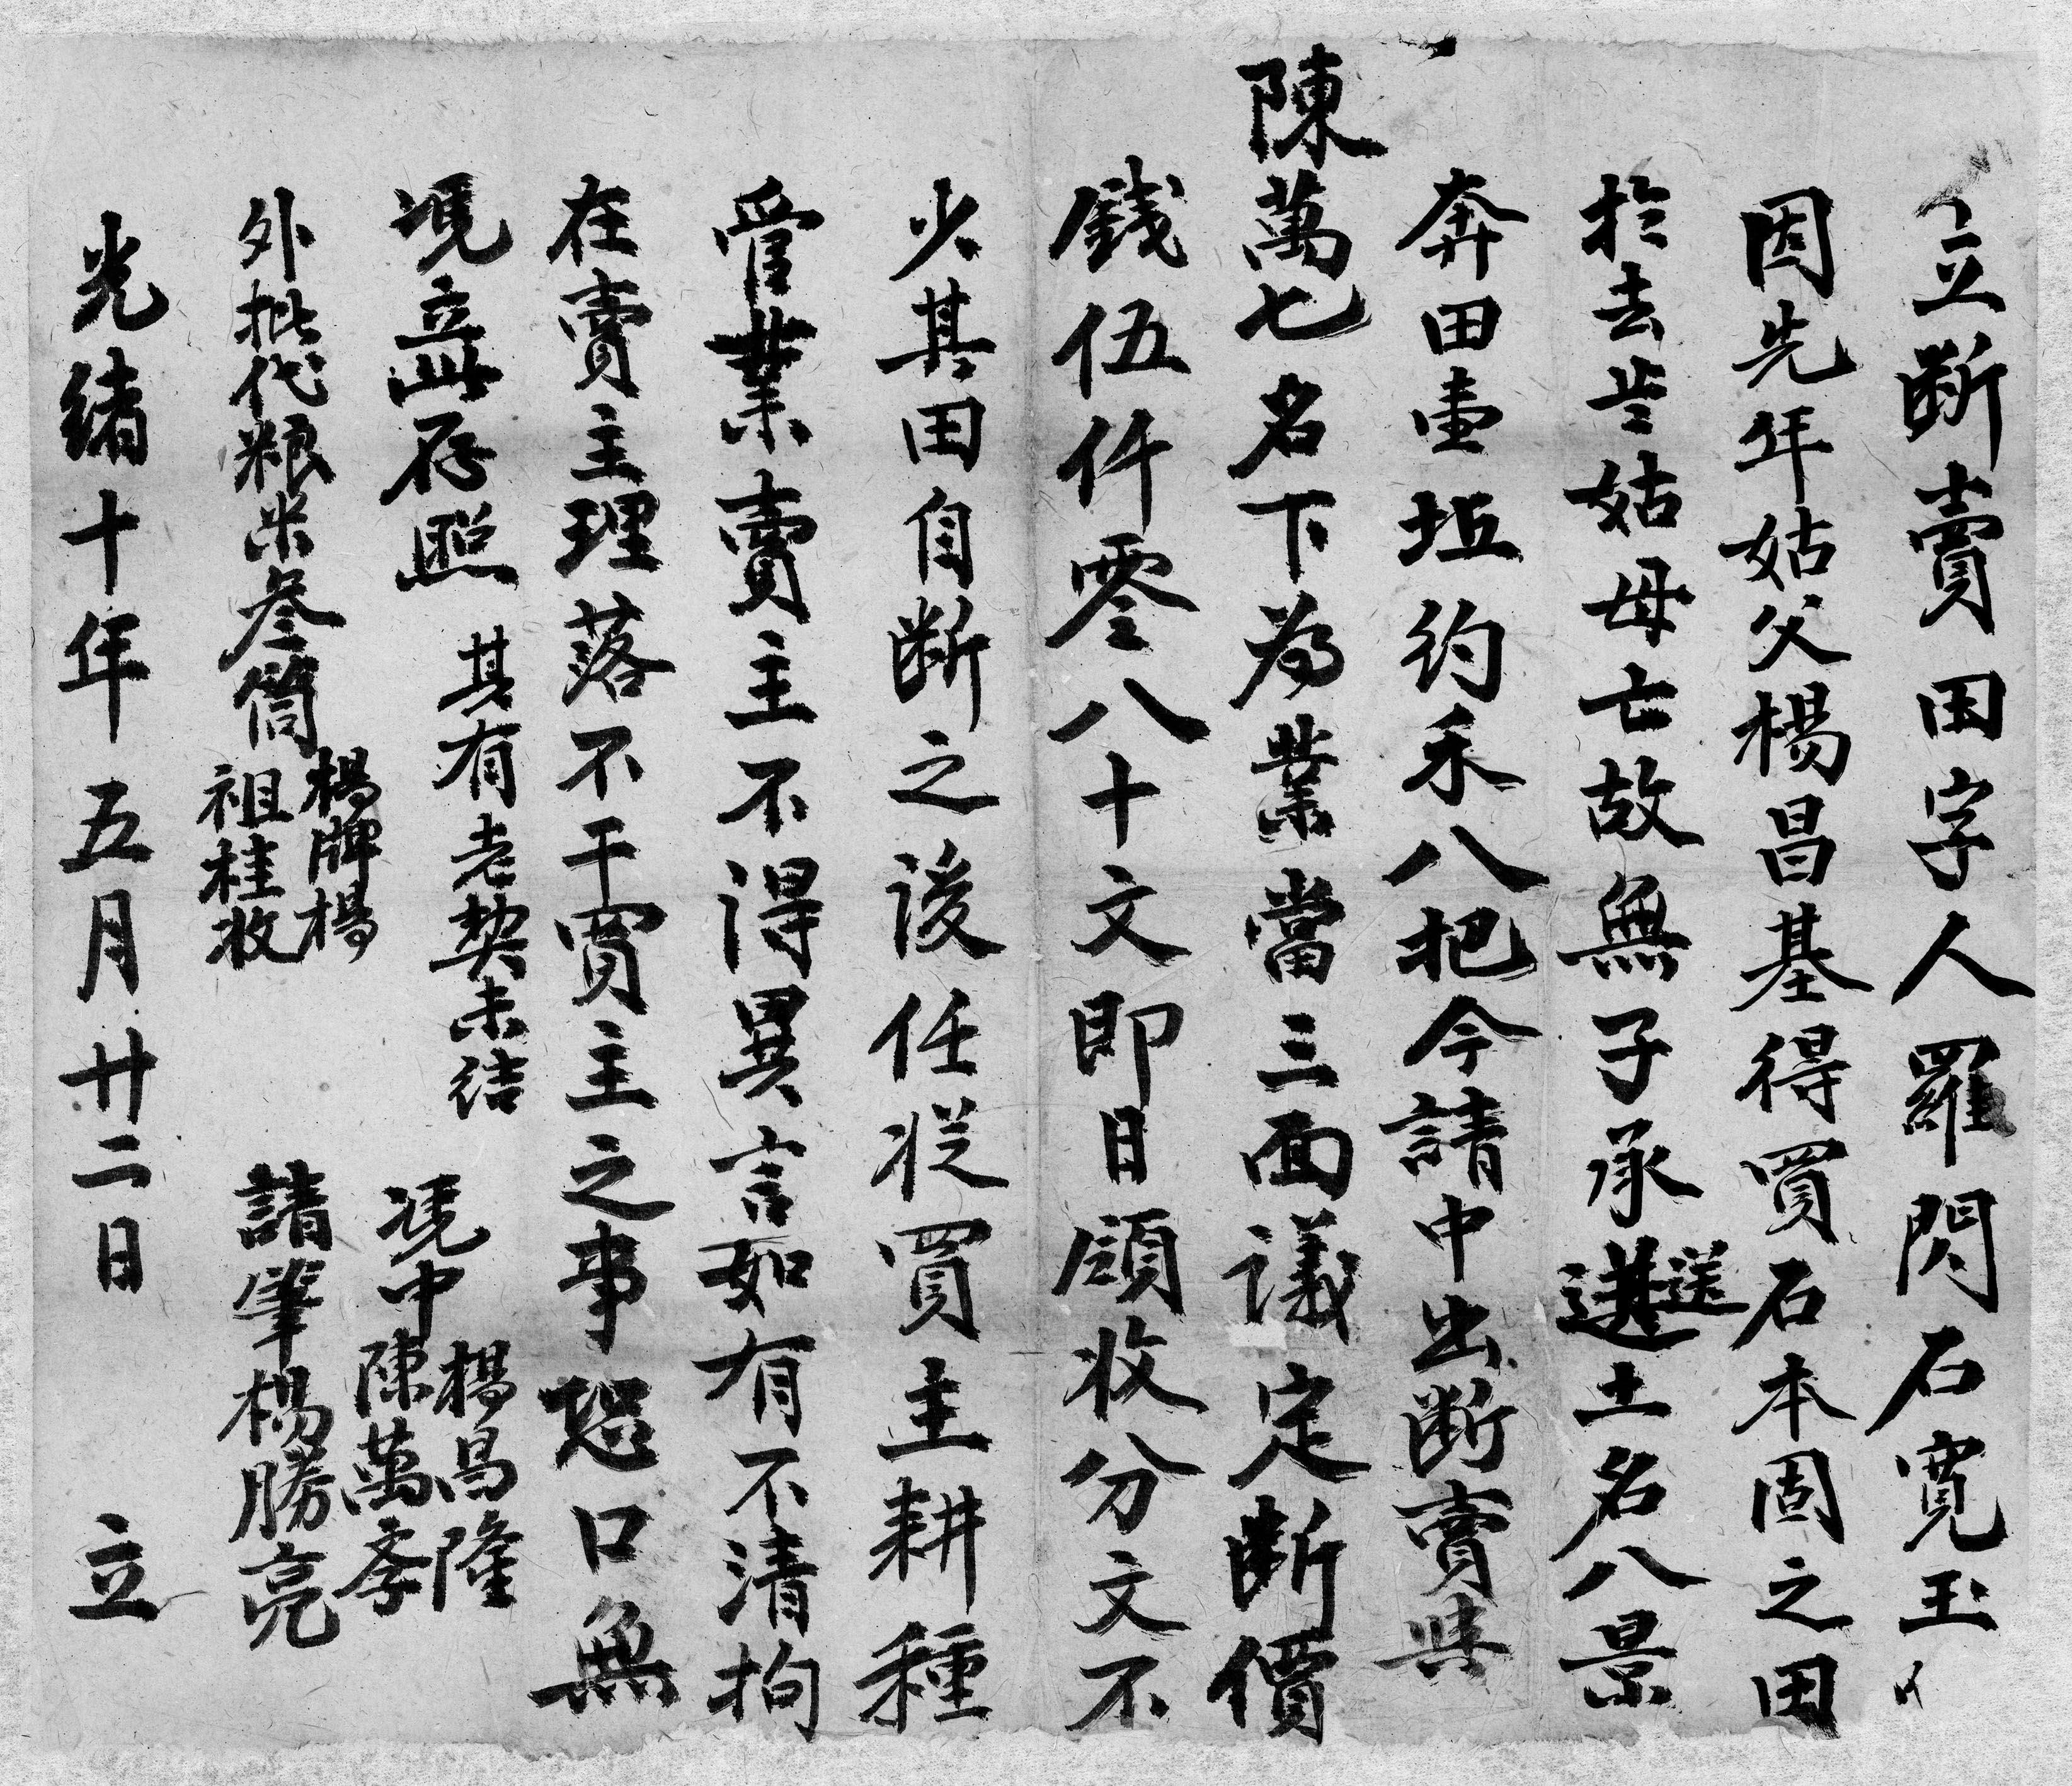 立断賣田字人羅閃石寬玉
因先年姑父楊昌基得買石本固之田
扵去岺姑母亡故無子承遴送土名八景
奔田壹坵約禾八把今請中出断賣與
陳萬七名下為業當三面議定断價
錢伍仟零八十文即日領收分文不
少其田自断之後任從買主耕種
管業賣主不得異言如有不清拘
在賣主理落不干買主之事恐口無
凴立此存照 其有老契未结
外批代粮米叁筒 楊牌楊
祖桂收
凴中 楊昌隆
陳萬季
請筆楊勝亮
光緒十年五月廿二日 立